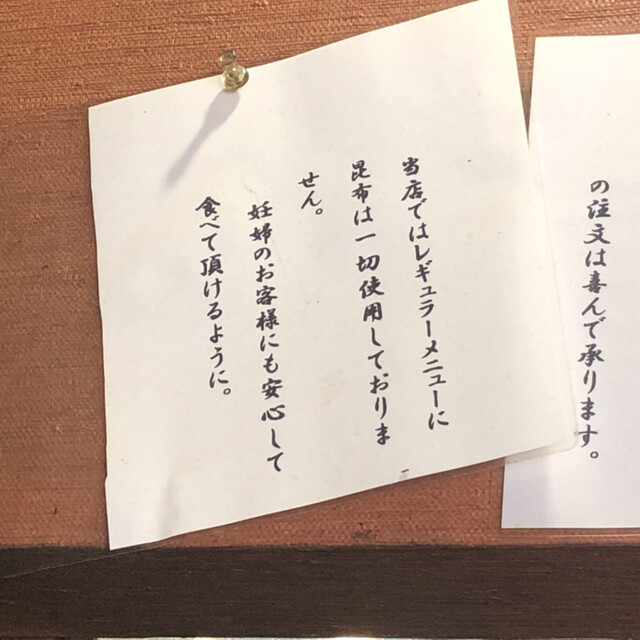 の注文は喜んで承ります。
当店ではレギュラーメニューに
昆布は一切使用しておりま
せん。
妊婦のお客様にも安心して
食べて頂けるように。